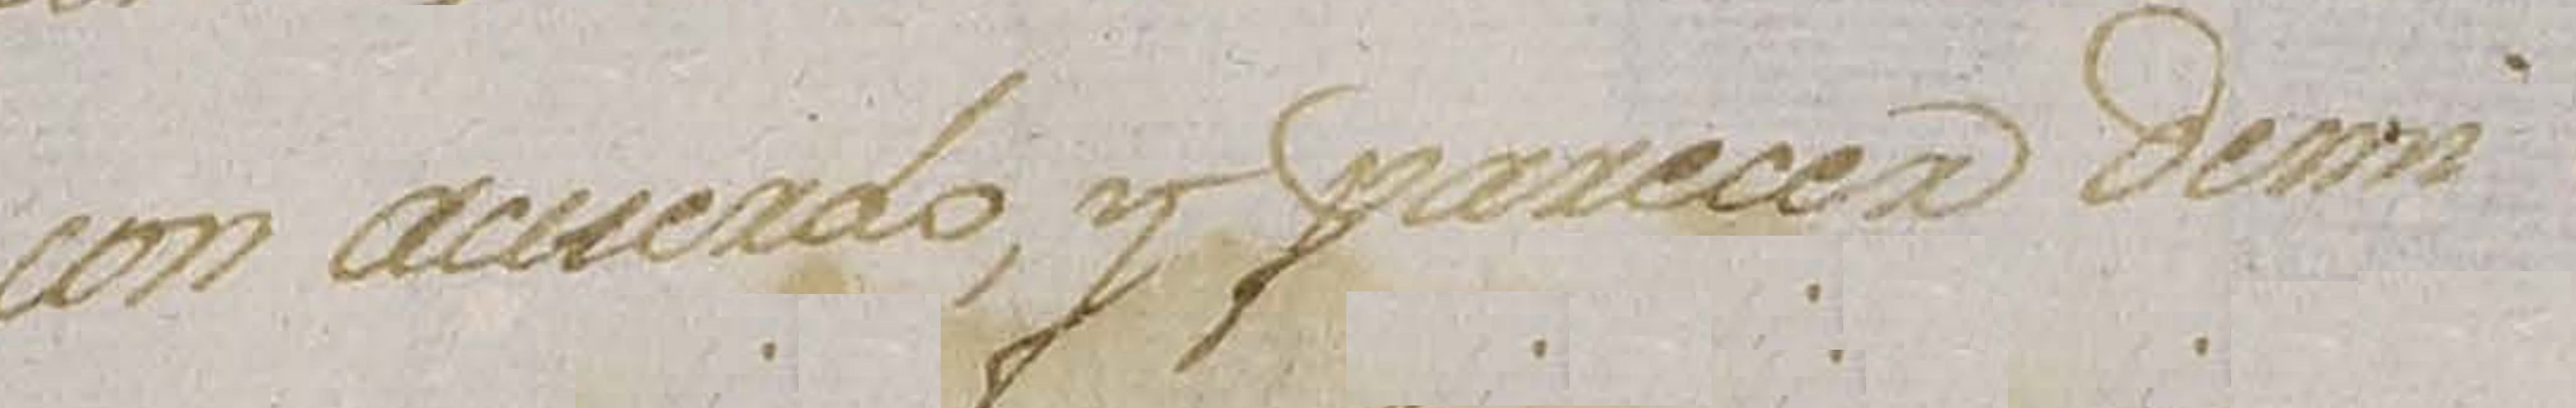 con acuerdo, y parecer demi